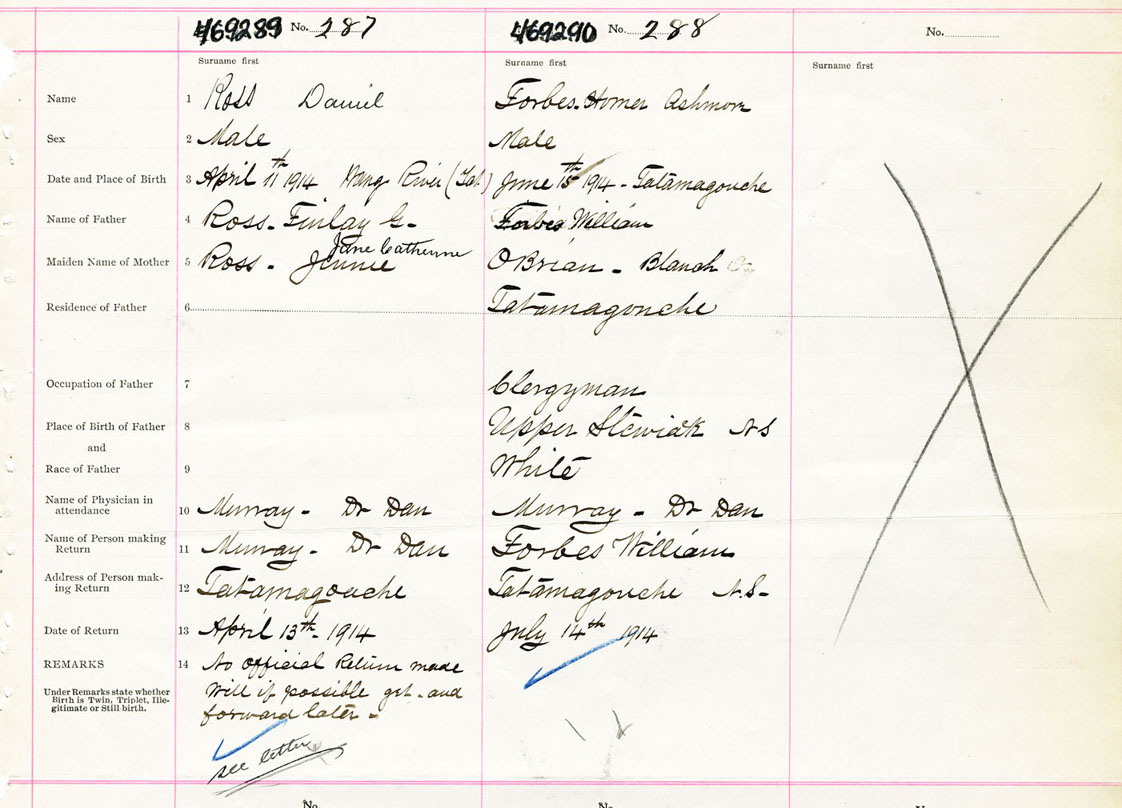 469289 No. 287 469290 No. 288 No.
Surname first Surname first Surname first
Name 1 Ross Daniel Forbes. Homer Ashmore
Sex 2 Male Male
Date and Place of Birth 3 April 11th 1914 River (Tat.) June 15th 1914 - Tatamagouche
Name of Father 4 Ross. Finlay G. Forbes William
Jane Catherine
Maiden Name of Mother 5 Ross - Jennie O'Brian - Blanch
Residence of Father 6 Tatamagouche
Occupation of Father 7 Clergyman
Place of Birth of Father 8 Upper Stewiak NS
and
Race of Father 9 White
Name of Physician in
attendance 10 Murray - Dr Dan Murray - Dr Dan
Name of Person making
Return 11 Murray - Dr Dan Forbes William
Address of Person mak-
ing Return 12 Tatamagouche Tatamagouche N.S-
Date of Return 13 April 13th - 1914 July 14th 1914
REMARKS 14 No official Return made
Under Remarks state whether
Birth is Twin, Triplet, Ille-
gitimate or Still-birth.
Will if possible get - and
forward later -
see letter
No. No.